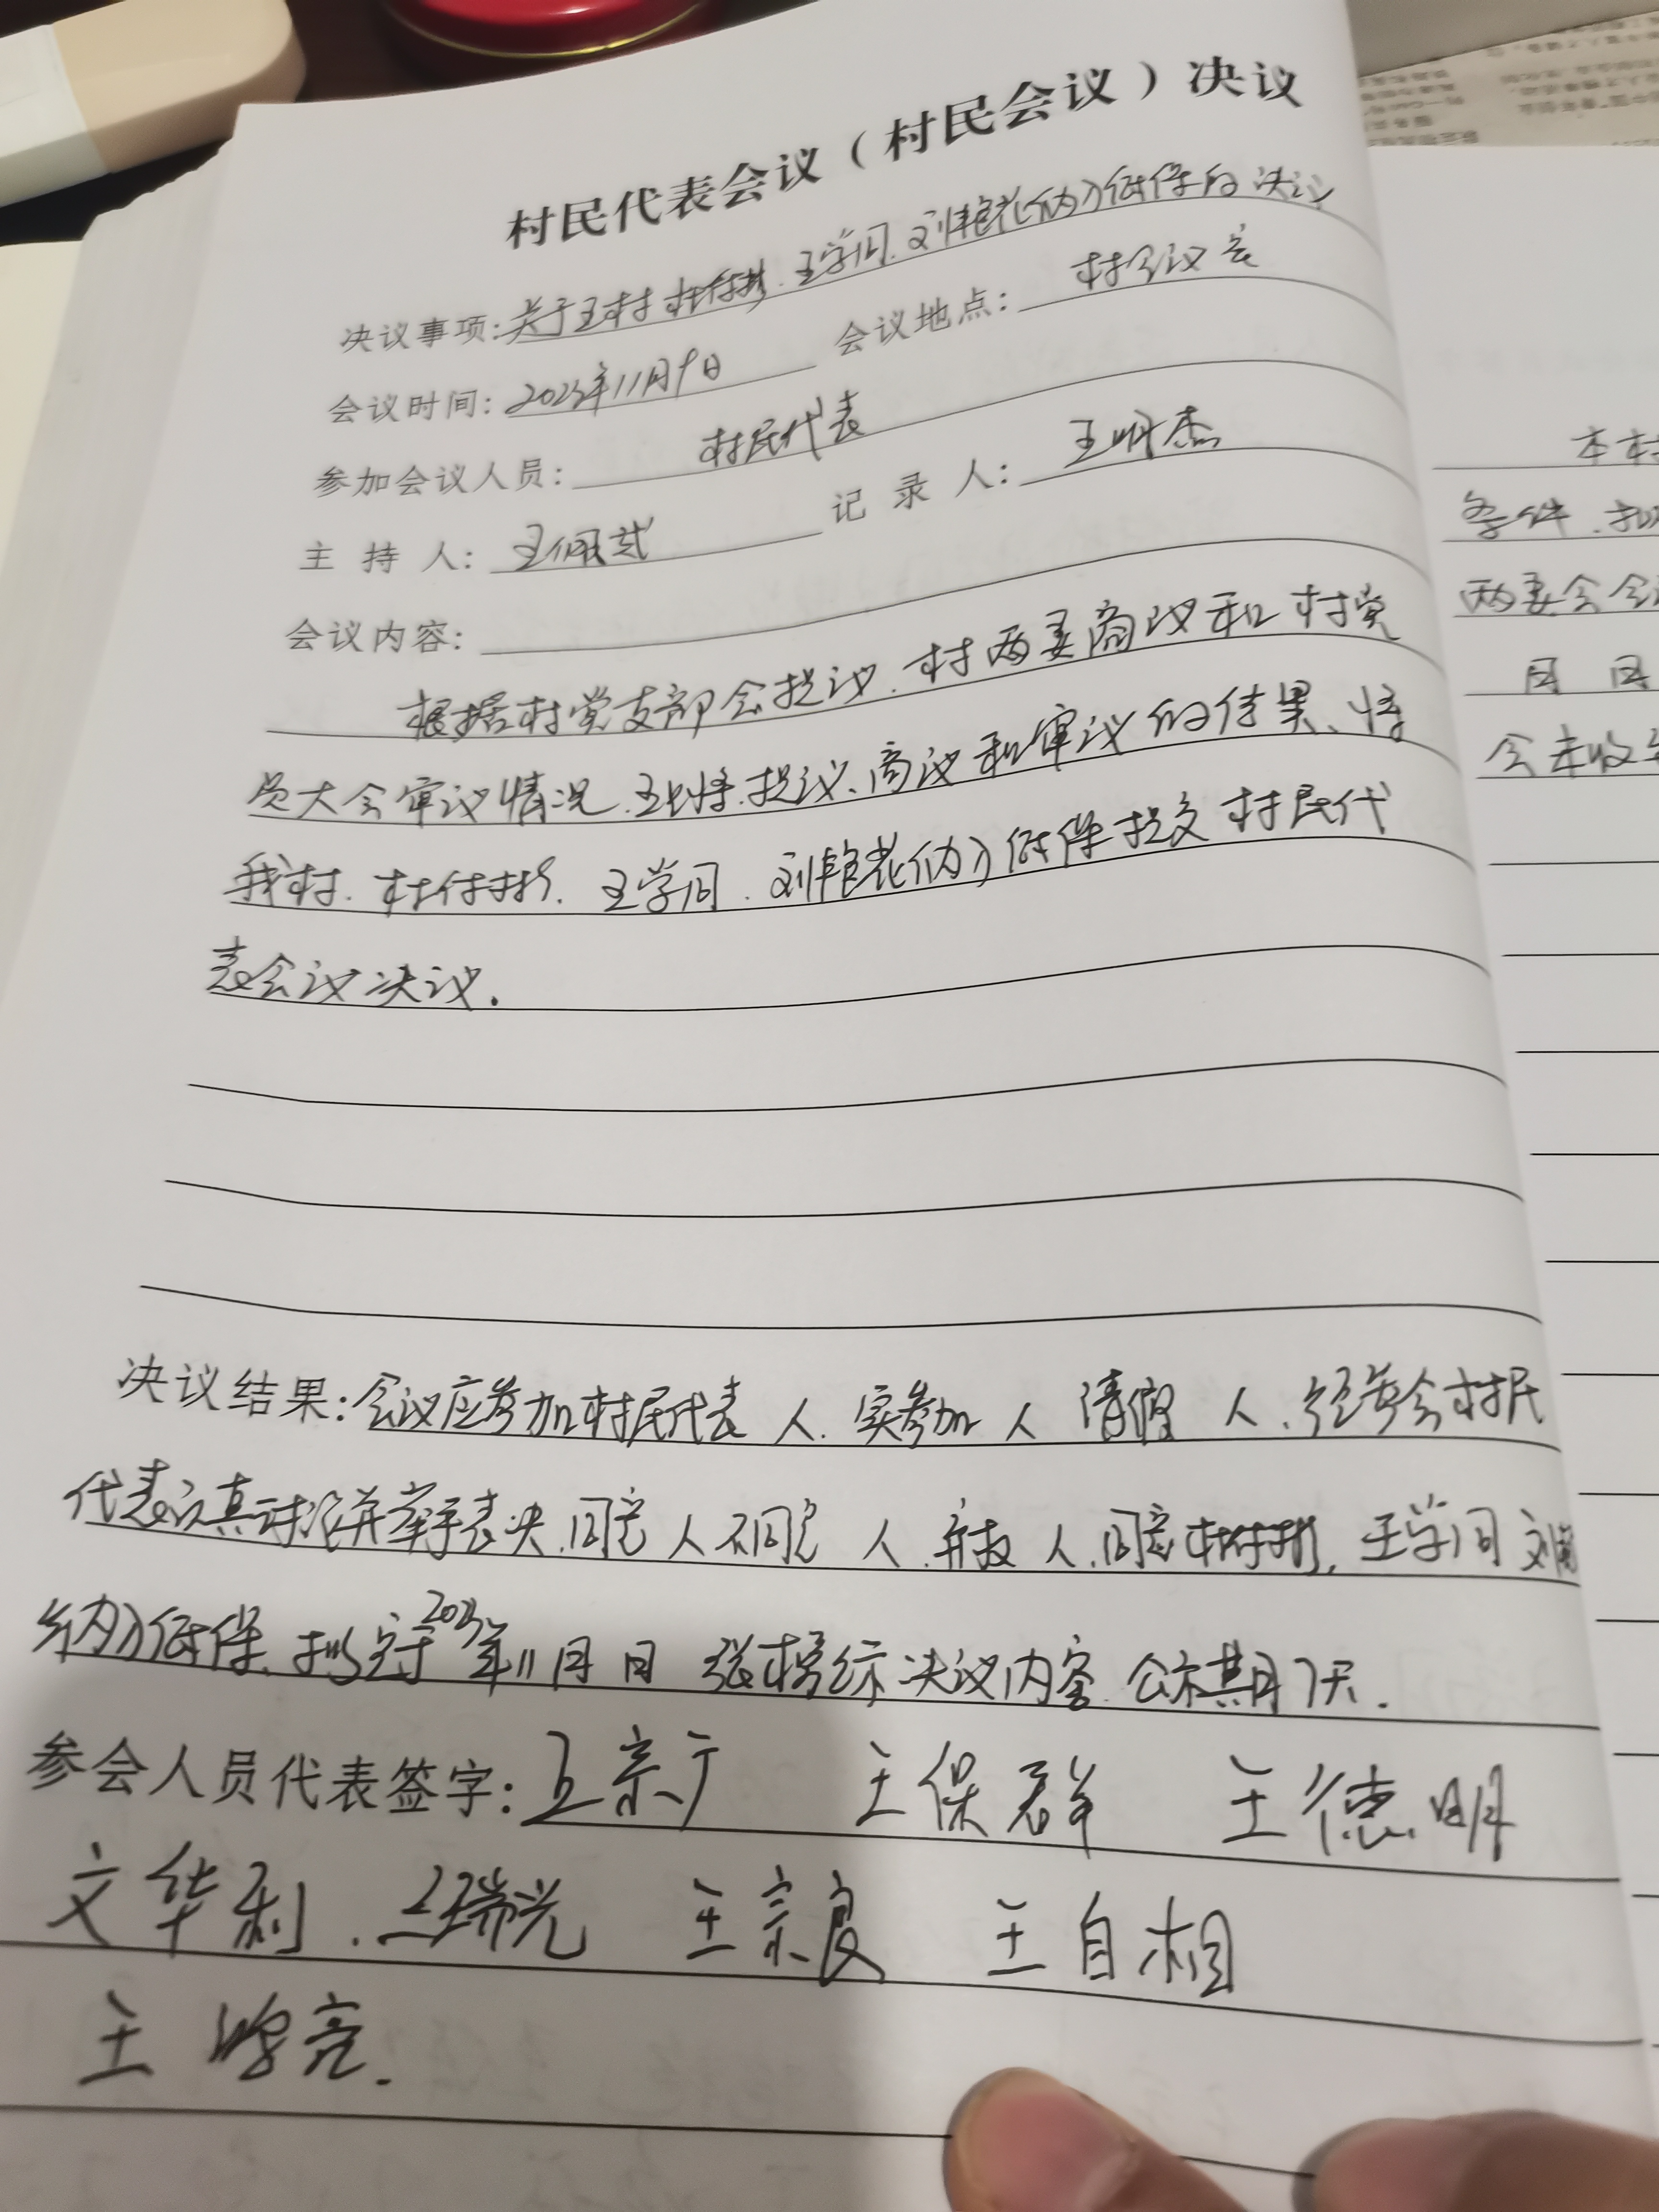 村民代表会议（村民会议）决议
决议事项：关于王村 杜付彬、王学问、刘艳花纳入低保的决议
会议时间：2023年11月9日 会议地点：村会议室
参加会议人员：村民代表
主持人：王佩武 记录人：王明杰
会议内容：
根据村党支部会提议、村两委商议和村党
员大会审议情况、现将、提议、商议和审议的结果、将
我村、杜付彬、王学问、刘艳花纳入低保提交村民代
表会议决议.
决议结果：会议应参加村民代表 人、实参加 人 请假 人、经与会村民
代表认真讨论并举手表决、同意 人 不同意 人、弃权 人、同意杜付彬、王学问 刘
纳入低保、拟定于2023年11月 日 张榜公示决议内容、公示期7天.
参会人员代表签字：王宗广 王保群 王德明
文华利. 王瑞光 王宗良 王自相
王 亮.
本村
条件、
两委会会
月 日
会未收